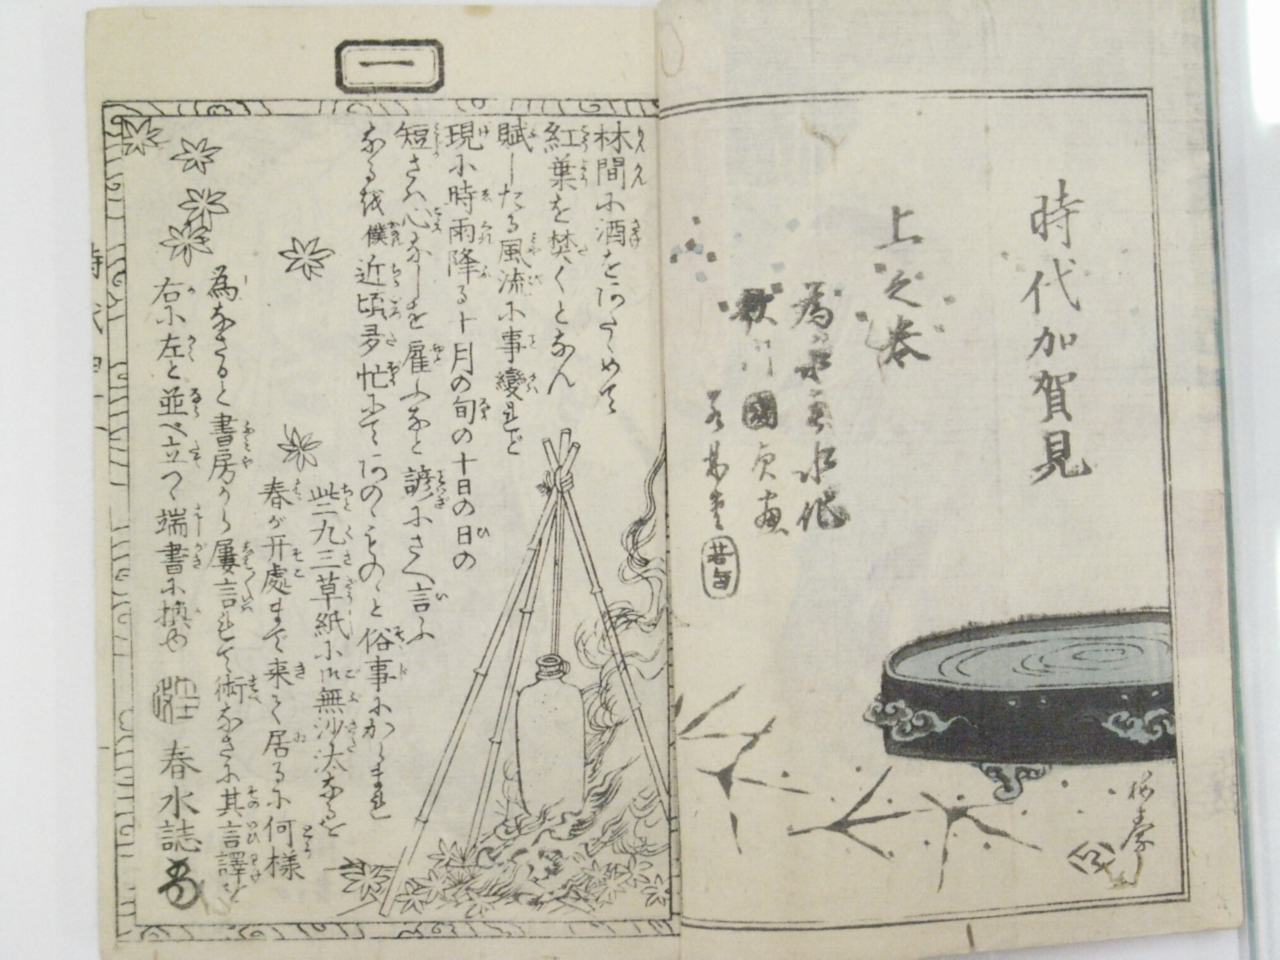 時代加賀見
上之巻
為永春水作
歌川國貞画
若林堂
一
林間に酒をあたゝめて
紅葉を焚くとなん
賦したる風流に事變れど
現に時雨降る十月の旬の十日の日の
短さハ心なしを雇ふなと諺にさへ言ふ
なる我僕近頃多忙にてあのくものと俗事にからまれ
此九三草紙に御無沙汰なるを
春が开處まで来て居るに何様
為なさると書房から屢言れて術なさに其言譯を
右に左と並べ立つゝ端書に換や
春水誌